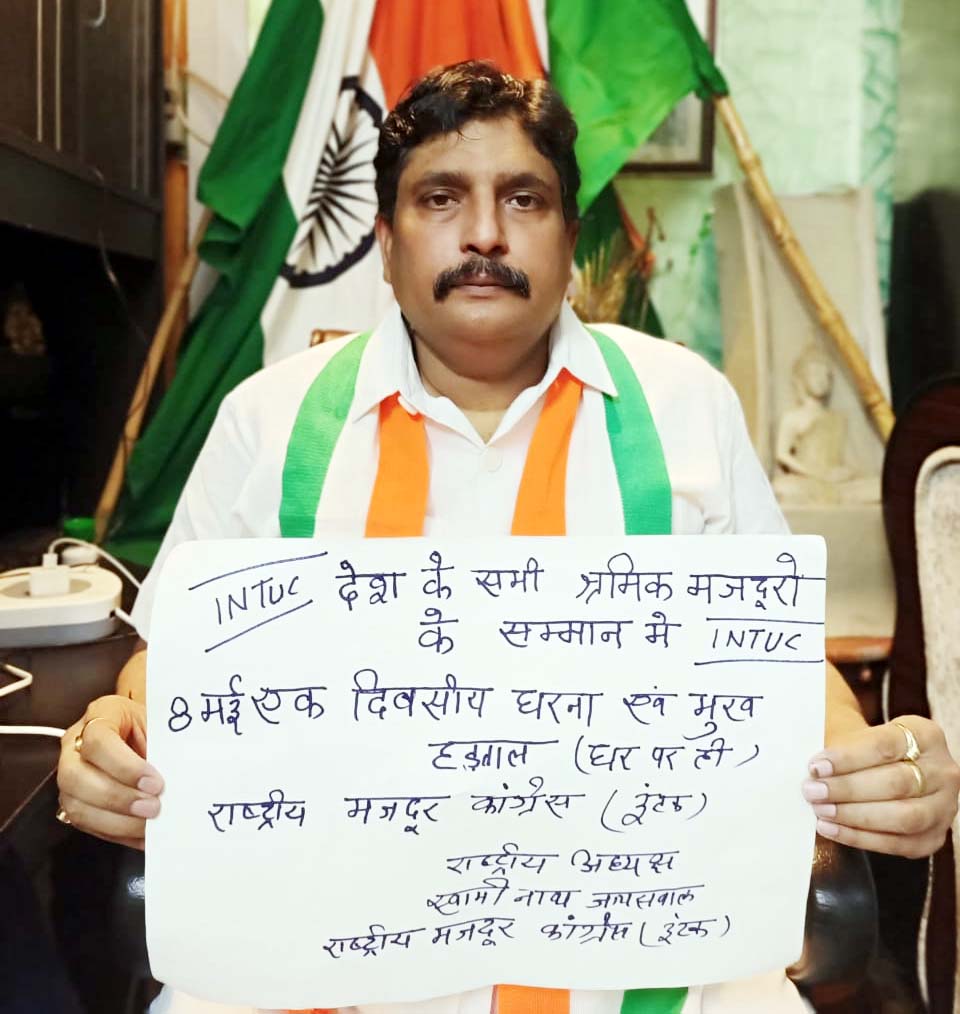 INTUC देश के सभी श्रमिक मजदूरो
के सम्मान मे INTUC
8 मई एक दिवसीय धरना एवं भुख
हड़ताल (घर पर ही)
राष्ट्रीय मजदूर कांग्रेस (इंटक)
राष्ट्रीय अध्यक्ष
स्वामी नाथ जायसवाल
राष्ट्रीय मजदूर कांग्रेस (इंटक)